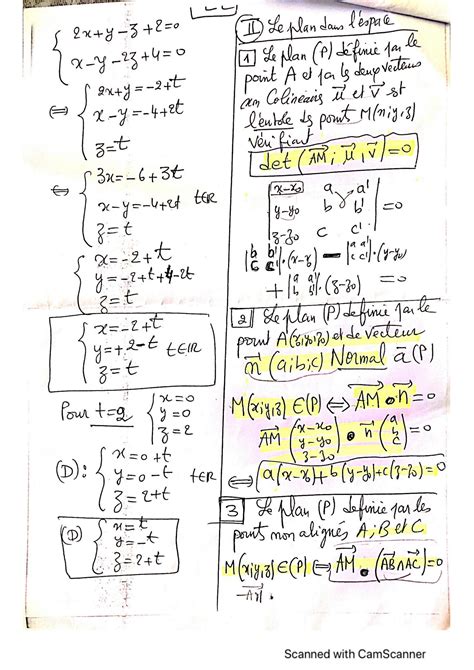 2x+y-z+2=0
x-y-2z+4=0
⇔ { 2x+y=-2+t
x-y=-4+2t
z=t
⇔ { 3x=-6+3t
x-y=-4+2t t∈R
z=t
{ x=-2+t
y=-2+t+4-2t
z=t
{ x=-2+t
y=+2-t t∈IR
z=t
Pour t=2 { x=0
y=0
z=2
(D): { x=0+t
y=0-t t∈R
z=2+t
(D) { x=t
y=-t
z=2+t
II Le plan dans l'éspace
1 Le plan (P) définie par le
point A et par les deux vecteurs
non Colinéairs u⃗ et v⃗ est
l'ensemble des points M(x;y;z)
vérifiant
det(AM⃗; u⃗, v⃗)=0
|x-x₀ a a'|
|y-y₀ b b'| =0
|z-z₀ c c'|
|b b'; c c'|·(x-x₀) - |a a'; c c'|·(y-y₀)
+ |a a'; b b'|·(z-z₀) =0
2 Le plan (P) definie par le
point A(x₀;y₀;z₀) et de vecteur
n⃗ (a;b;c) Normal à (P)
M(x;y;z) ∈(P) ⇔ AM⃗ • n⃗ = 0
AM⃗ (x-x₀; y-y₀; z-z₀) • n⃗ (a; b; c) = 0
⇔ a(x-x₀)+b(y-y₀)+c(z-z₀)=0
3 Le plan (P) definie par les
points non alignés A; B et C
M(x;y;z)∈(P) ⇔ AM⃗ • (AB⃗∧AC⃗)=0
Scanned with CamScanner